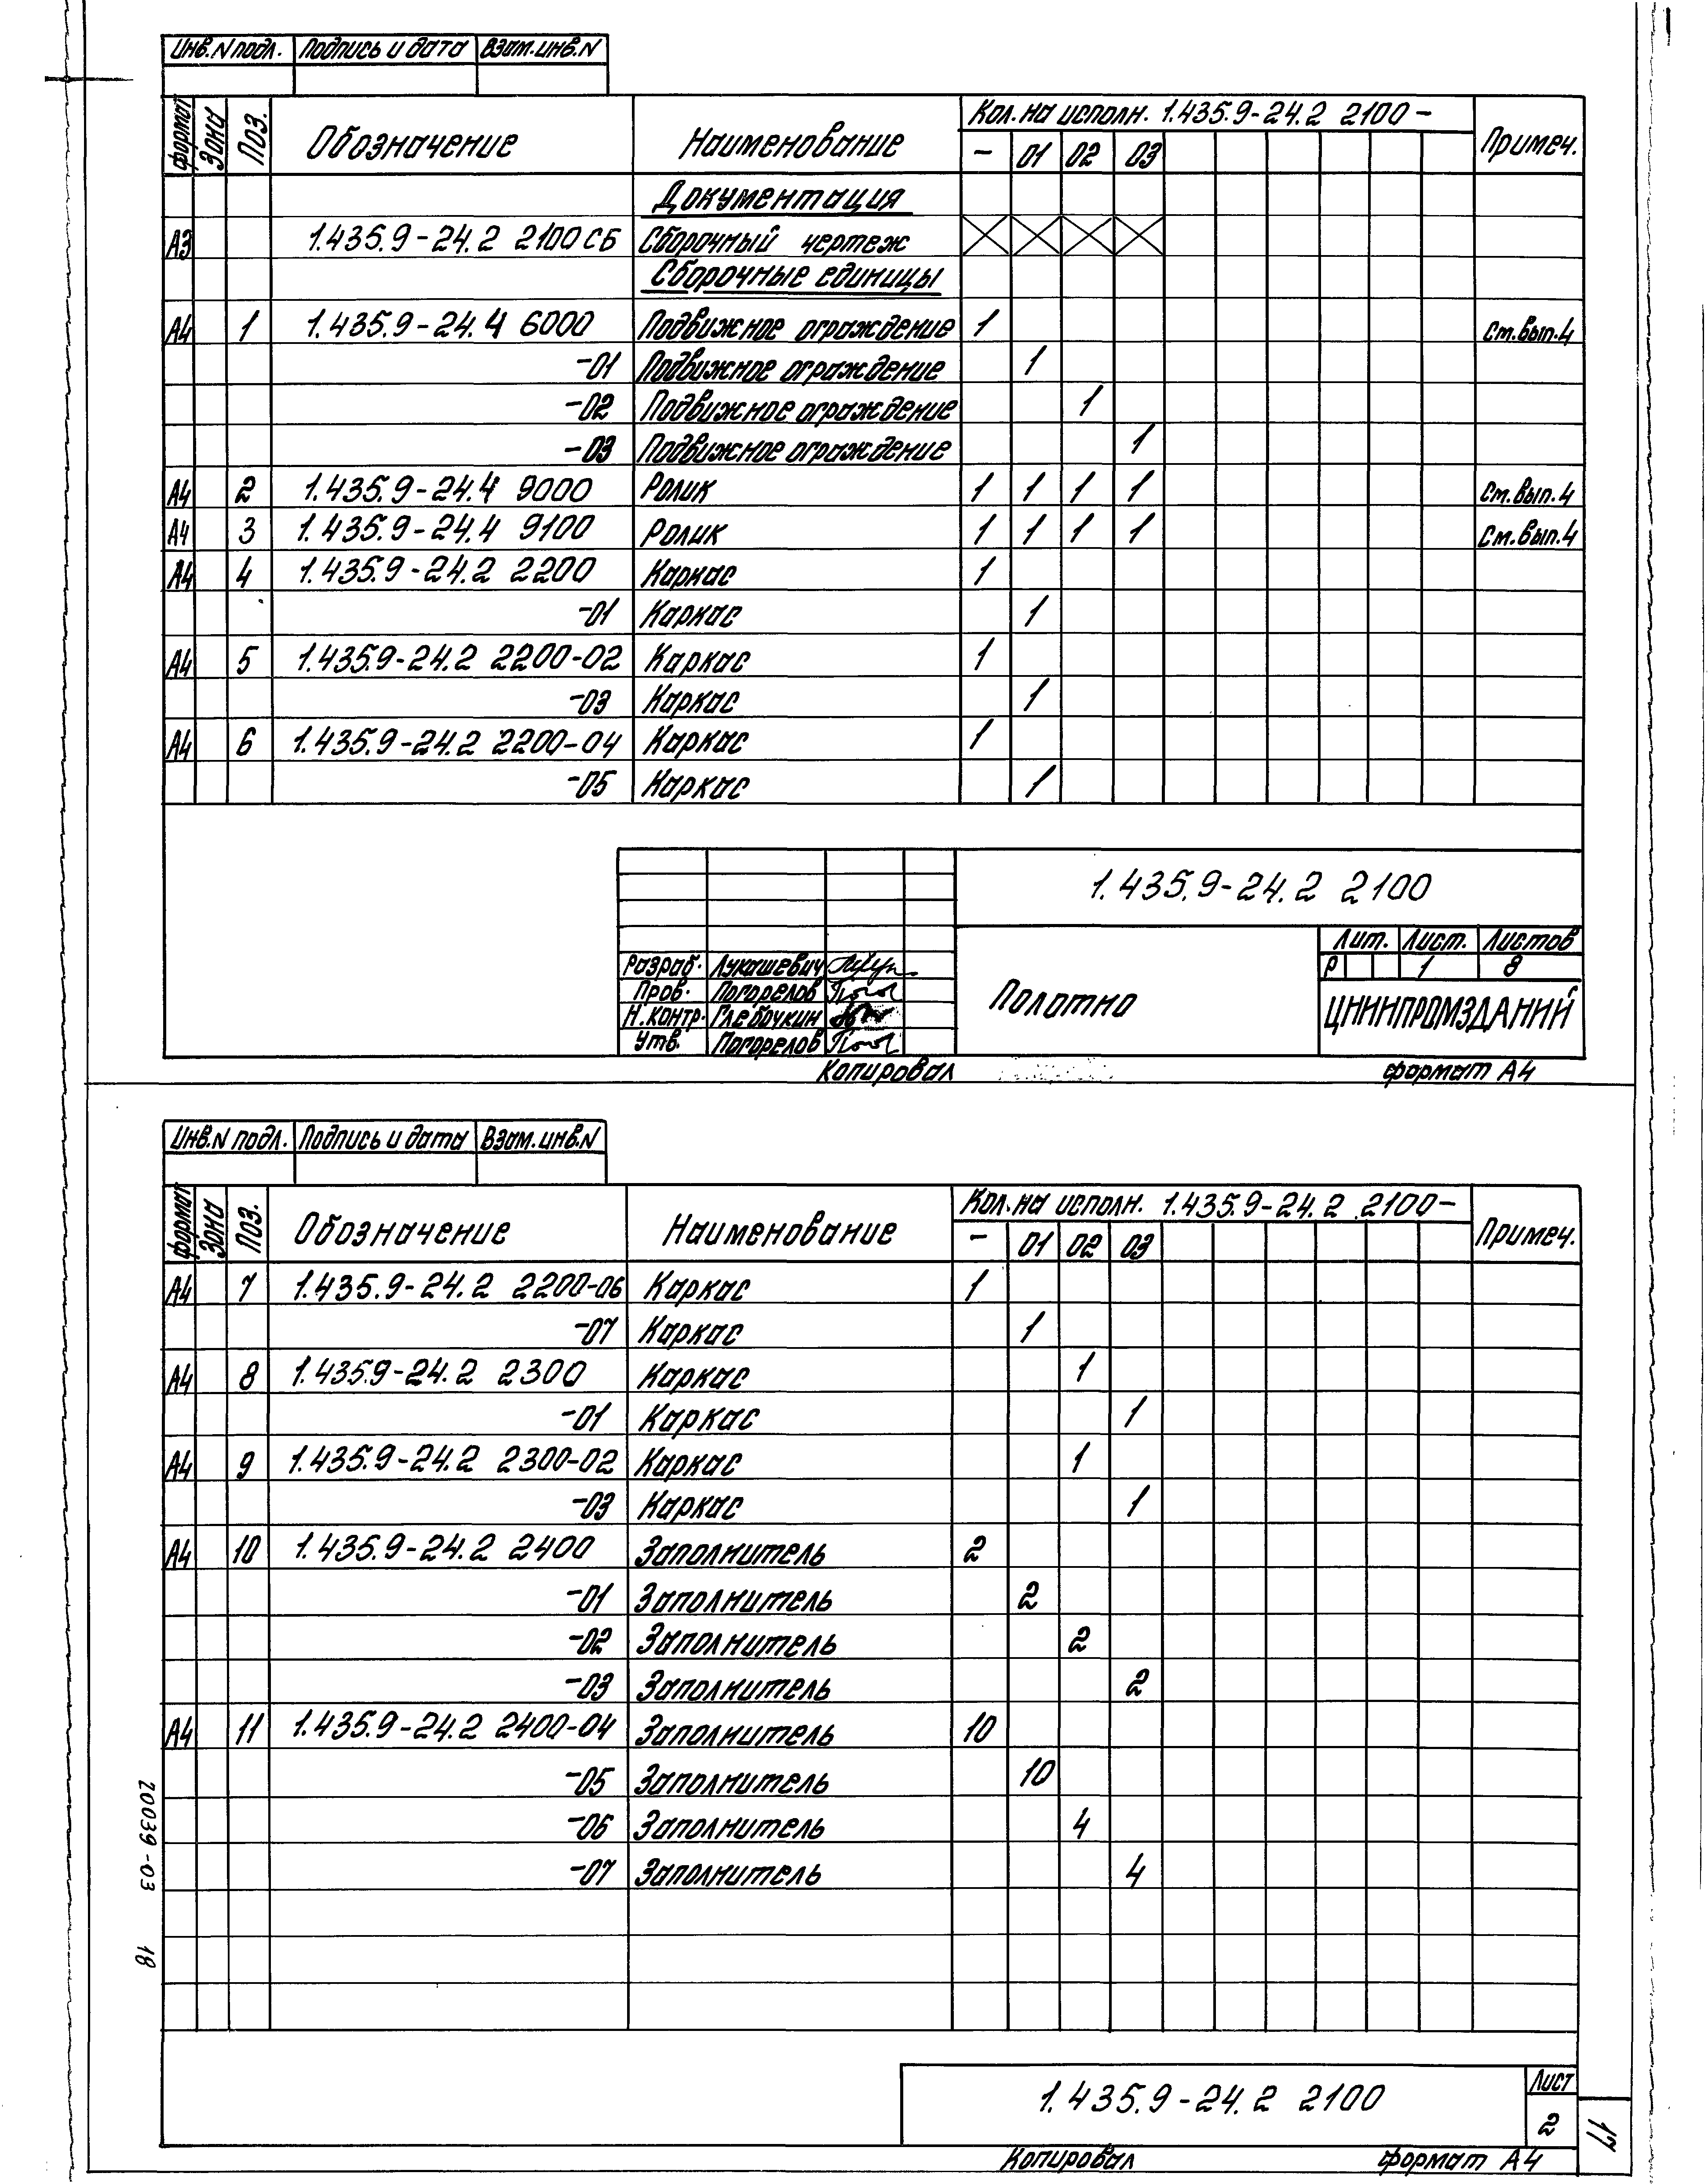 Инв.N подл. Подпись и дата Взам.инв.N
формат Зона Поз. Обозначение Наименование Кол. на исполн. 1.435.9-24.2 2100 - Примеч.
- 01 02 03
Документация
А3 1.435.9-24.2 2100 СБ Сборочный чертеж
Сборочные единицы
А4 1 1.435.9-24.4 6000 Подвижное ограждение 1 См.вып.4
-01 Подвижное ограждение 1
-02 Подвижное ограждение 1
-03 Подвижное ограждение 1
А4 2 1.435.9-24.4 9000 Ролик 1 1 1 1 См.вып.4
А4 3 1.435.9-24.4 9100 Ролик 1 1 1 1 См.вып.4
А4 4 1.435.9-24.2 2200 Каркас 1
-01 Каркас 1
А4 5 1.435.9-24.2 2200-02 Каркас 1
-03 Каркас 1
А4 6 1.435.9-24.2 2200-04 Каркас 1
-05 Каркас 1
1.435.9-24.2 2100
Лит. Лист. Листов
Р 1 8
Разраб. Лукашевич
Пров. Погорелов
Н.контр. Глебочкин
Утв. Погорелов
Полотно
ЦНИИПРОМЗДАНИЙ
Копировал формат А4
Инв.N подл. Подпись и дата Взам.инв.N
формат Зона Поз. Обозначение Наименование Кол.на исполн. 1.435.9-24.2 2100- Примеч.
- 01 02 03
А4 7 1.435.9-24.2 2200-06 Каркас 1
-07 Каркас 1
А4 8 1.435.9-24.2 2300 Каркас 1
-01 Каркас 1
А4 9 1.435.9-24.2 2300-02 Каркас 1
-03 Каркас 1
А4 10 1.435.9-24.2 2400 Заполнитель 2
-01 Заполнитель 2
-02 Заполнитель 2
-03 Заполнитель 2
А4 11 1.435.9-24.2 2400-04 Заполнитель 10
-05 Заполнитель 10
-06 Заполнитель 4
-07 Заполнитель 4
20039-03 18
1.435.9-24.2 2100
Лист
2
17
Копировал формат А4